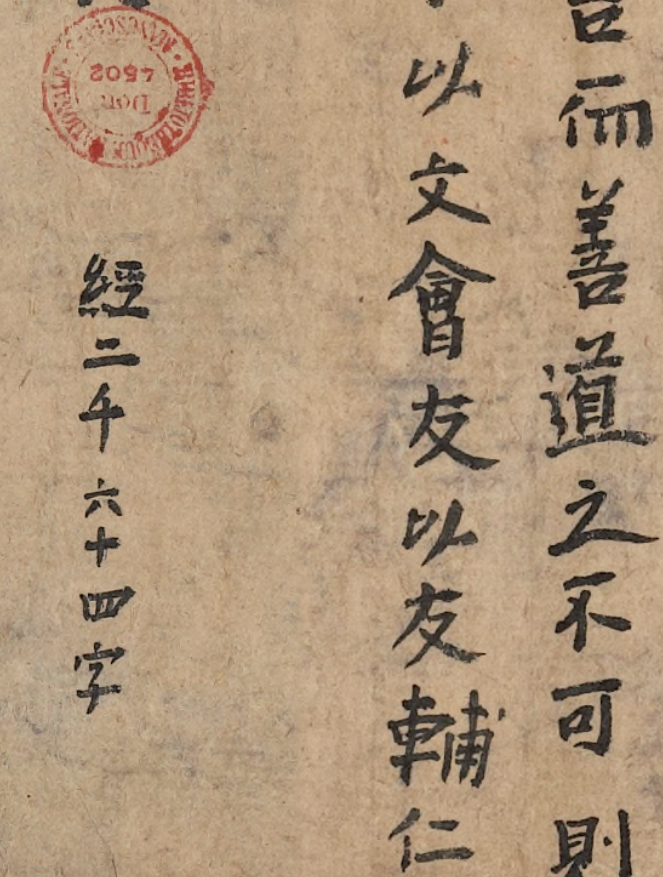 告而善道之不可則
以文會友以友輔仁
經二千六十四字
BIBLIOTHEQUE NATIONALE MANUSCRITS
Don
4502